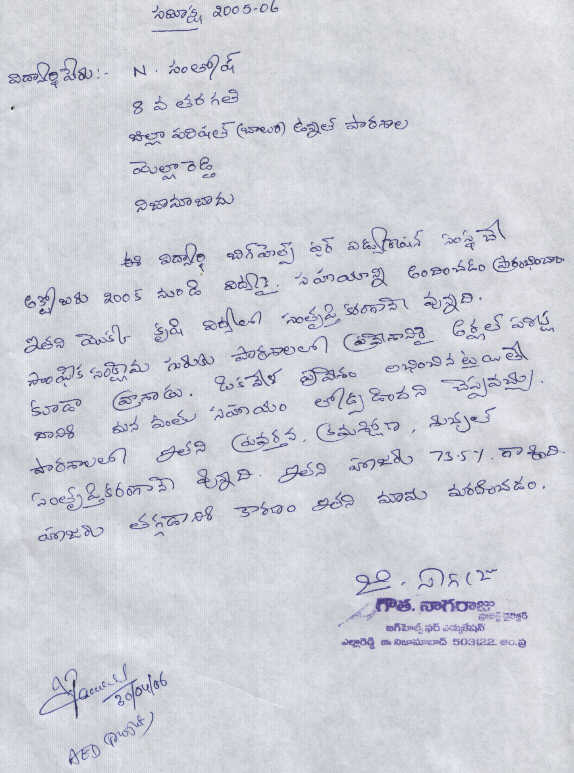 సమీన్న 2005-06
విద్యార్థి పేరు:- N. సంతోష్
8 వ తరగతి
జిల్లా పరిషత్ (బాలుర) ఉన్నత పాఠశాల
యెల్లారెడ్డి
నిజామాబాదు
ఈ విద్యార్థి బిగ్‌హెల్ప్ ఫర్ ఎడ్యుకేషన్ సంస్థచే
అక్టోబరు 2005 నుండి విద్యకై సహాయాన్ని అందించడం ప్రారంభించారు
ఇతని యొక్క కృషి విద్యలో సంతృప్తికరంగానే వున్నది.
సాంఘిక సంక్షేమ గురుకు పాఠశాలలో ప్రవేశానికై పరీక్ష
కూడా వ్రాసాడు. ఒకవేళ ప్రవేశం లభించినట్లయితే
దానికి మన వంతు సహాయం తోడ్పడిందని చెప్పవచ్చు.
పాఠశాలలో ఇతని ప్రవర్తన, క్రమశిక్షణ,
సంతృప్తికరంగానే వున్నది. ఇతని హాజరు 73.5%. గా వుంది.
హాజరు తగ్గడానికి కారణం ఇతని మామ మరణించడం.
గౌత. నాగరాజు
ప్రాజెక్ట్ డైరెక్టర్
బిగ్‌హెల్ప్ ఫర్ ఎడ్యుకేషన్
ఎల్లారెడ్డి జి॥ నిజామాబాద్ 503122. ఆం.ప్ర
30/04/06